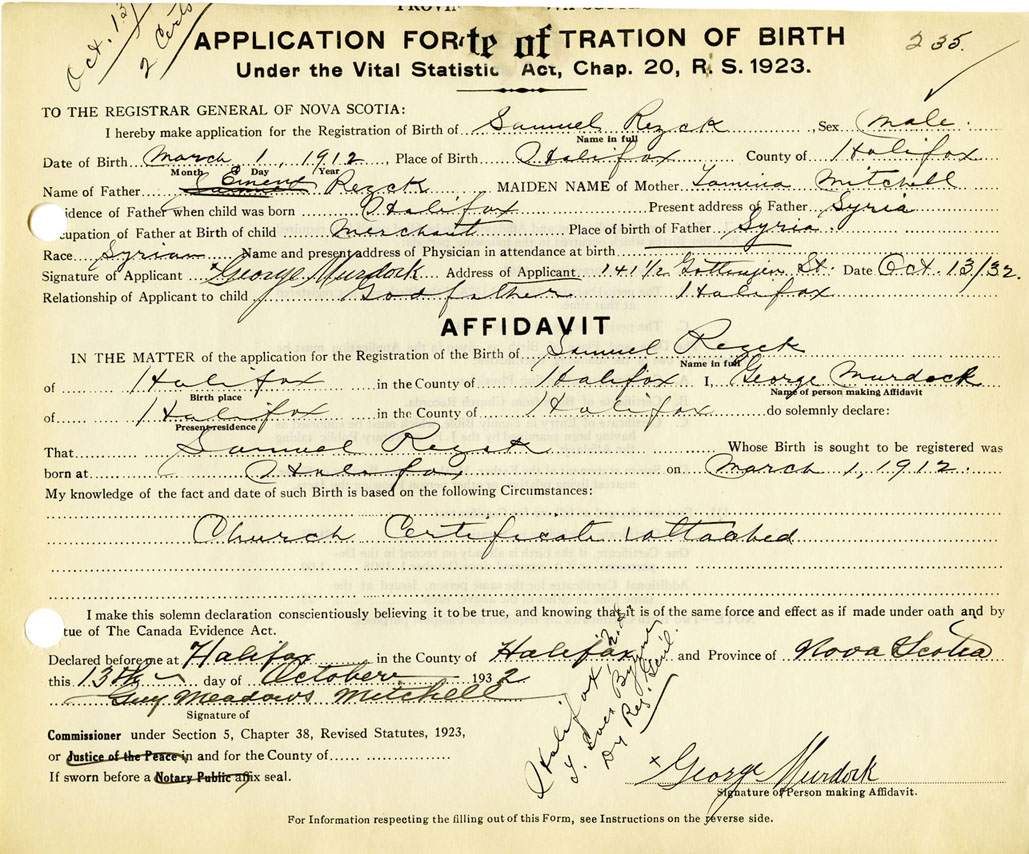 Oct. 13/
2 Certs
235.
APPLICATION FOR te of TRATION OF BIRTH
Under the Vital Statistic Act, Chap. 20, R. S. 1923.
TO THE REGISTRAR GENERAL OF NOVA SCOTIA:
I hereby make application for the Registration of Birth of Samuel Rezck, Sex Male.
Name in full
Date of Birth March 1, 1912, Place of Birth Halifax County of Halifax
Month Day Year
Name of Father Rezck MAIDEN NAME of Mother Lamina Mitchell
idence of Father when child was born Halifax Present address of Father Syria
cupation of Father at Birth of child Merchant Place of birth of Father Syria
Race Syrian Name and present address of Physician in attendance at birth
Signature of Applicant George Murdock Address of Applicant 141 1/2 Gottingen St. Date Oct. 13/32.
Relationship of Applicant to child Godfather Halifax
AFFIDAVIT
IN THE MATTER of the application for the Registration of the Birth of Samuel Rezck
Name in full
of Halifax in the County of Halifax I, George Murdock
Birth place Name of person making Affidavit
of Halifax in the County of Halifax do solemnly declare:
Present residence
That Samuel Rezck Whose Birth is sought to be registered was
born at Halifax on March 1, 1912.
My knowledge of the fact and date of such Birth is based on the following Circumstances:
Church Certificate attached
I make this solemn declaration conscientiously believing it to be true, and knowing that it is of the same force and effect as if made under oath and by
tue of The Canada Evidence Act.
Declared before me at Halifax in the County of Halifax and Province of Nova Scotia
this 13th day of October 1932
Guy Meadows Mitchell
Signature of
Commissioner under Section 5, Chapter 38, Revised Statutes, 1923,
or Justice of the Peace in and for the County of
If sworn before a Notary Public affix seal.
Halifax
Dy Reg. Genl.
x George Murdock
Signature of Person making Affidavit.
For Information respecting the filling out of this Form, see Instructions on the reverse side.